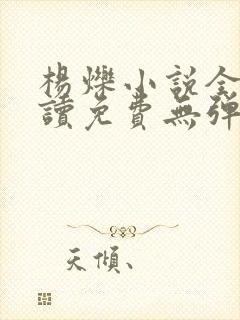 楊爍小說全
讀免費無彈
天傾、